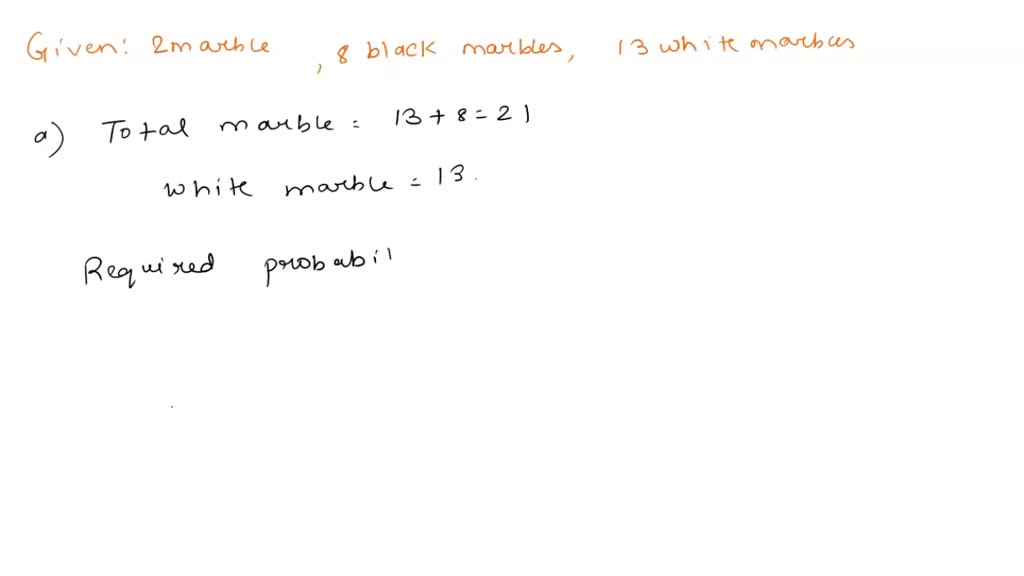 Given: 2 marble , 8 black marbles, 13 white marbles
a) Total marble = 13 + 8 = 21
white marble = 13.
Required probabil